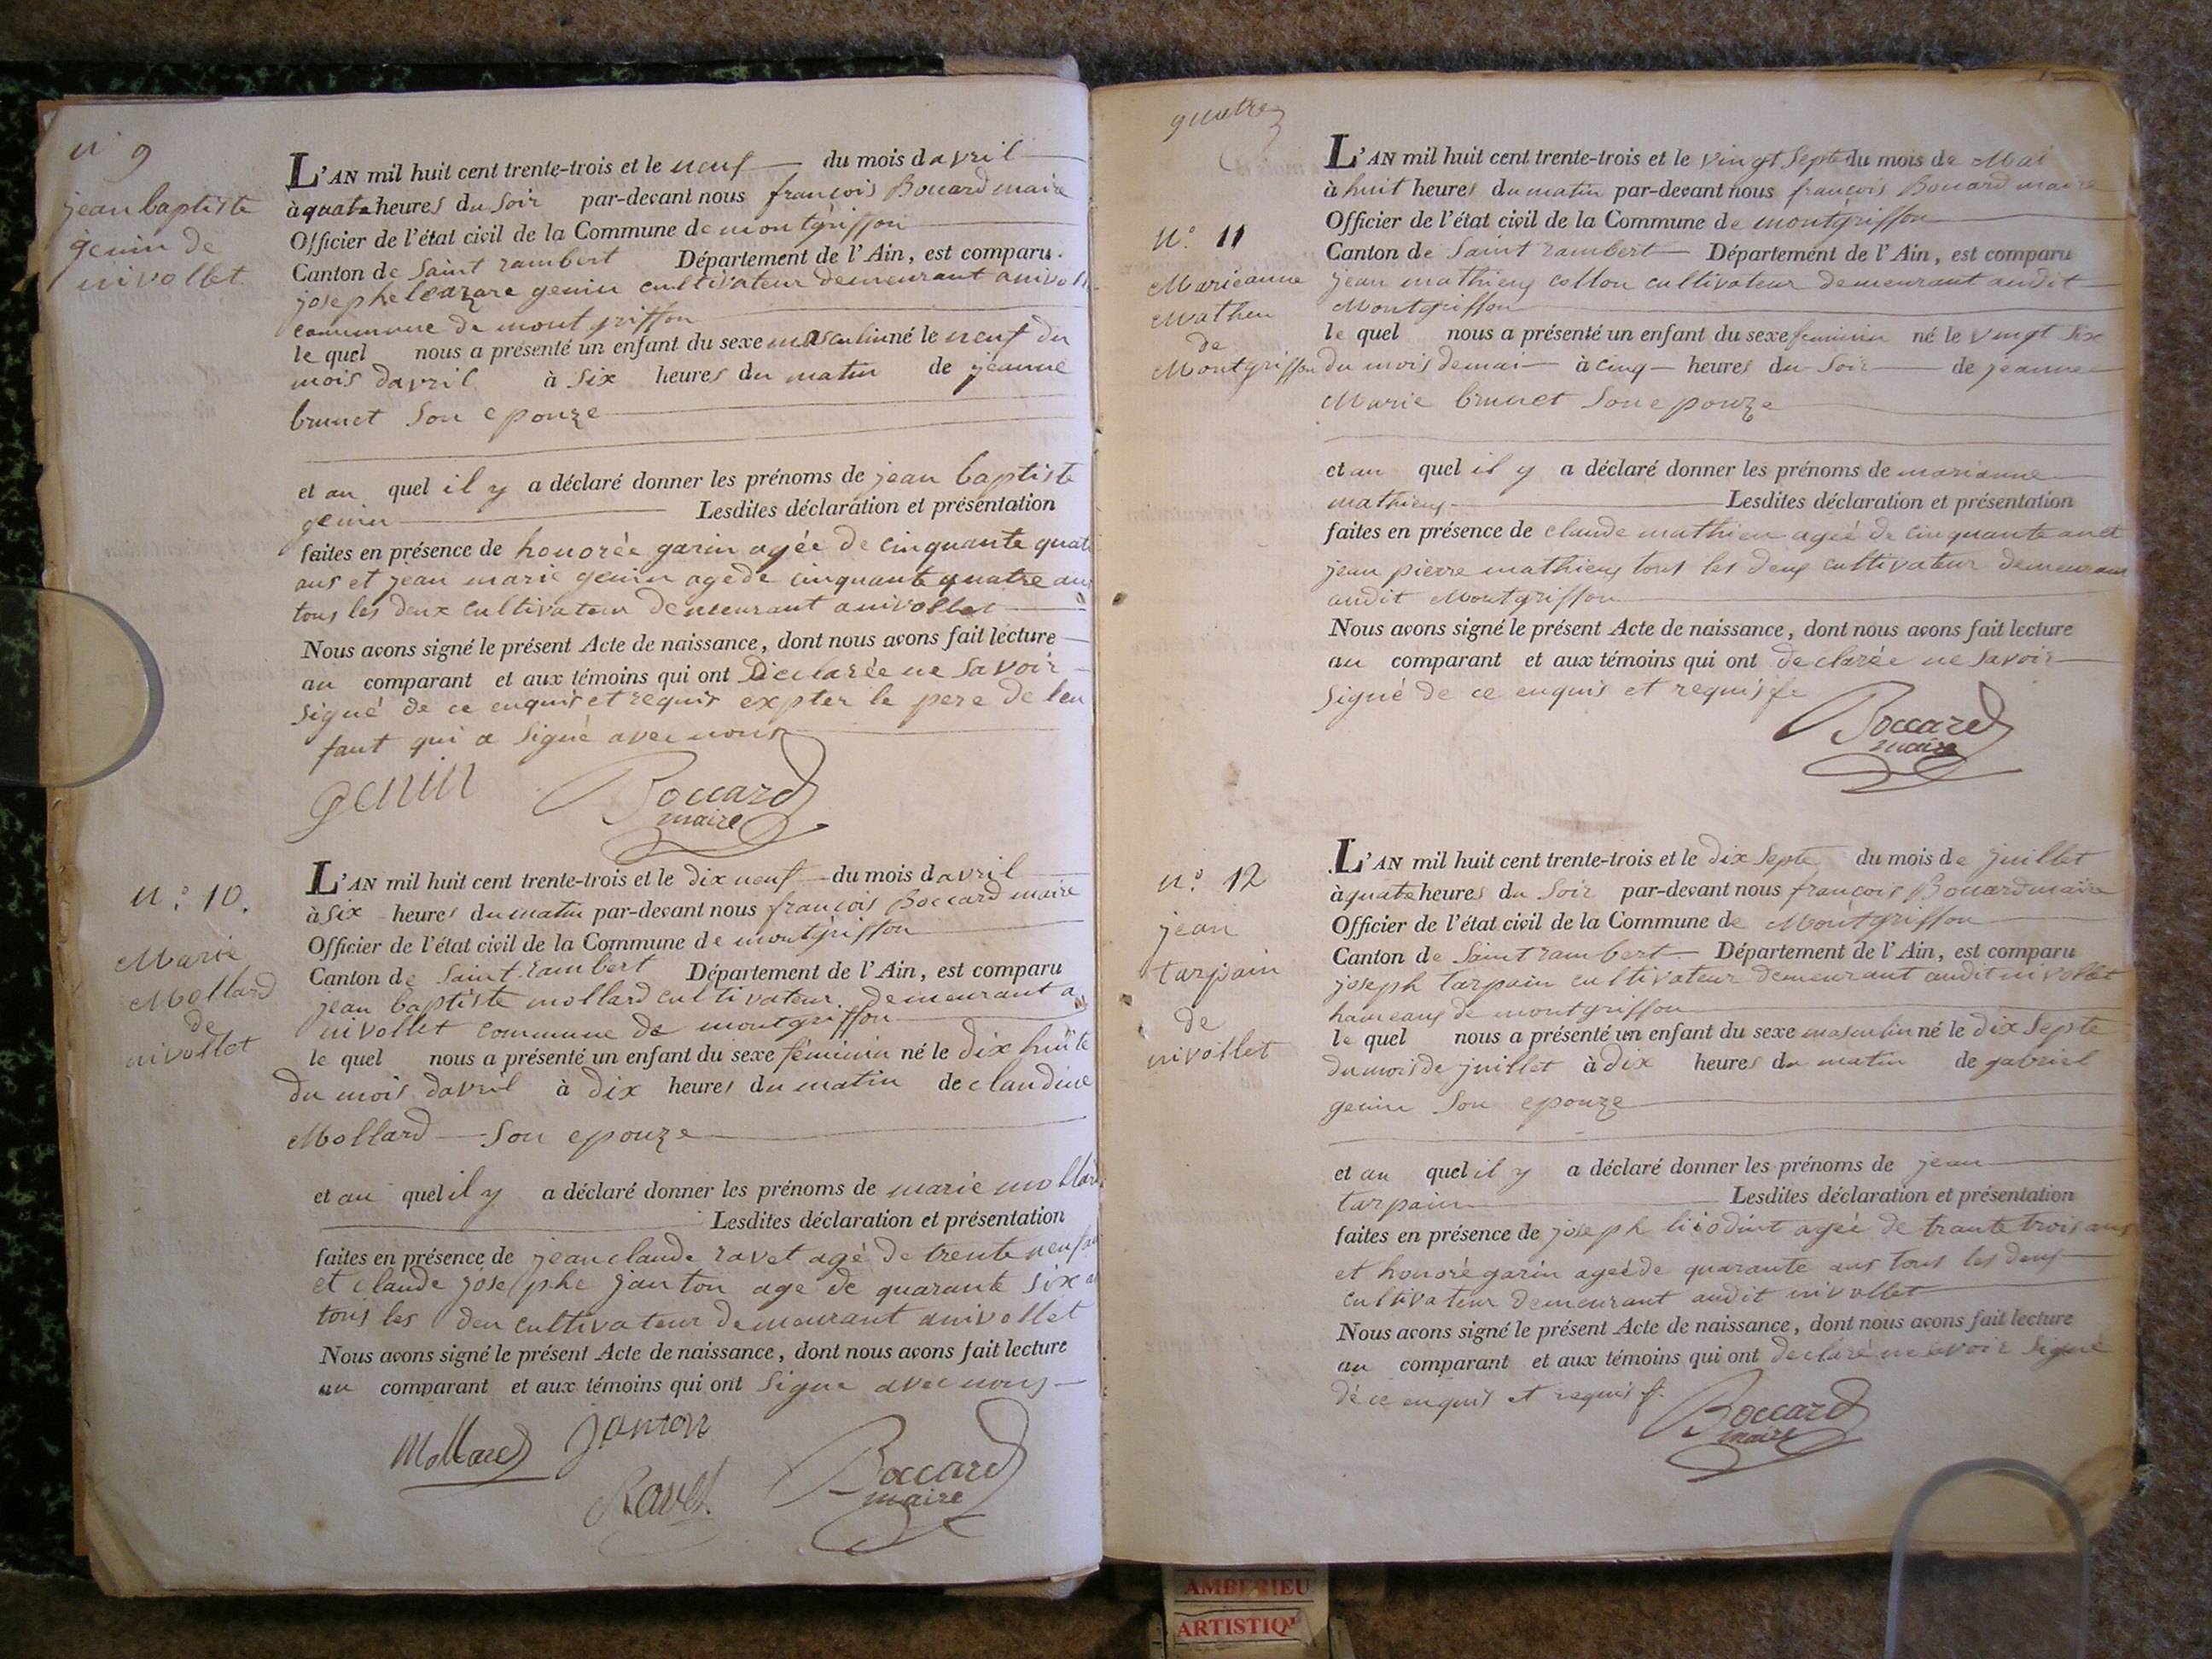 n° 9
jean baptiste
genin de
nivollet
L'AN mil huit cent trente-trois et le neuf du mois davril
à quatre heures du Soir par-devant nous françois Boccard maire
Officier de l'état civil de la Commune de montgriffon
Canton de Saint rambert Département de l'Ain, est comparu
josephe leazare genin cultivateur demeurant anivoll
commune de mont griffon
le quel nous a présenté un enfant du sexe masculin né le neuf du
mois davril à Six heures du matin de jeanne
brunet Son epouze
et au quel il y a déclaré donner les prénoms de jean baptiste
genin Lesdites déclaration et présentation
faites en présence de honorée garin agée de cinquante quat
ans et jean marie genin age de cinquante quatre ans
tous les deux cultivateur demeurant anivollet
Nous avons signé le présent Acte de naissance, dont nous avons fait lecture
au comparant et aux témoins qui ont Déclarée ne Savoir
Signé de ce enquis et requis expter le pere de len
fant qui a Signé avec nous
genin Boccard
maire
n° 10.
Marie
Mollard
de
nivollet
L'AN mil huit cent trente-trois et le dix neuf du mois davril
à Six heures du matin par-devant nous françois Boccard maire
Officier de l'état civil de la Commune de montgriffon
Canton de Saint-rambert Département de l'Ain, est comparu
jean baptiste mollard cultivateur demeurant a
nivollet commune de montgriffon
le quel nous a présenté un enfant du sexe féminin né le dix huite
du mois davril à dix heures du matin de claudine
Mollard Son epouze
et au quel il y a déclaré donner les prénoms de marie mollard
Lesdites déclaration et présentation
faites en présence de jean claude ravet agé de trente neuf
et claude josephe janton age de quarante six
tous les deu cultivateur demeurant anivollet
Nous avons signé le présent Acte de naissance, dont nous avons fait lecture
au comparant et aux témoins qui ont Signe avec nous
Mollard Janton
Ravet Boccard
maire
quatre
n° 11
Marieanne
Mathieu
de
Montgriffon
L'AN mil huit cent trente-trois et le vingt Septe du mois de Mai
à huit heures du matin par-devant nous françois Boccard maire
Officier de l'état civil de la Commune de montgriffon
Canton de Saint rambert Département de l'Ain, est comparu
jean mathieux collon cultivateur demeurant audit
Montgriffon
le quel nous a présenté un enfant du sexe feminin né le vingt Six
du mois demai à cinq heures du Soir de jeanne
Marie brunet Son epouze
et au quel il y a déclaré donner les prénoms de marianne
mathieux Lesdites déclaration et présentation
faites en présence de claude mathieu ageé de cinquante an et
jean pierre mathieux tous les deux cultivateur demeurant
audit Montgriffon
Nous avons signé le présent Acte de naissance, dont nous avons fait lecture
au comparant et aux témoins qui ont declarée ne Savoir
Signé de ce enquis et requis
Boccard
maire
n° 12
jean
tarpain
de
nivollet
L'AN mil huit cent trente-trois et le dix Septe du mois de juillet
à quatre heures du Soir par-devant nous françois Boccard maire
Officier de l'état civil de la Commune de Montgriffon
Canton de Saint rambert Département de l'Ain, est comparu
joseph tarpain cultivateur demeurant audit nivollet
hameaux de montgriffon
le quel nous a présenté un enfant du sexe masculin né le dix Septe
du mois de juillet à dix heures du matin de gabriel
genin Son epouze
et au quel il y a déclaré donner les prénoms de jean
tarpain Lesdites déclaration et présentation
faites en présence de joseph ageé de trante trois ans
et honoré garin ageé de quarante ans tous les deux
cultivateur demeurant audit nivollet
Nous avons signé le présent Acte de naissance, dont nous avons fait lecture
au comparant et aux témoins qui ont declaré ne Savoir Signé
de ce enquis et requis
Boccard
maire
AMBERIEU
ARTISTIQ